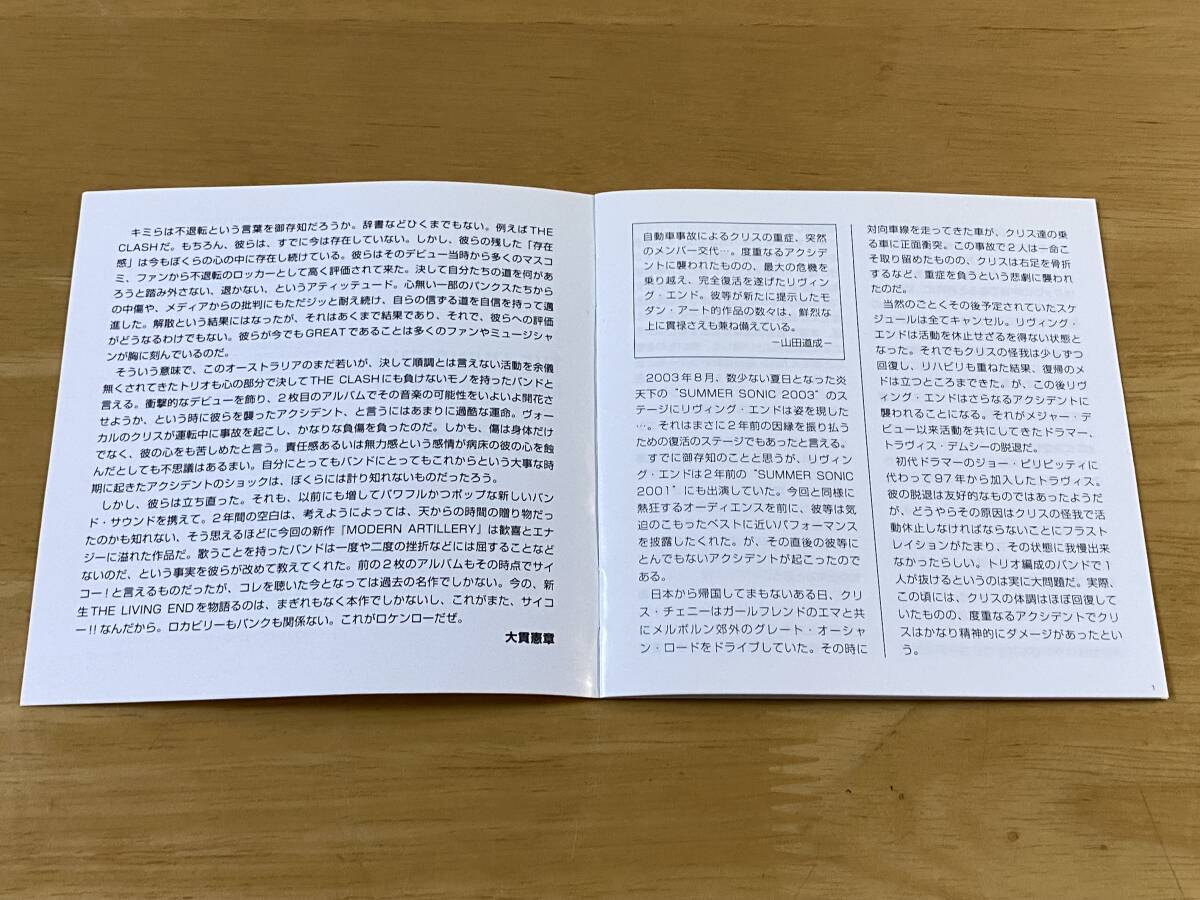 キミらは不退転という言葉を御存知だろうか。辞書などひくまでもない。例えばTHE
CLASHだ。もちろん、彼らは、すでに今は存在していない。しかし、彼らの残した「存在
感」は今もぼくらの心の中に存在し続けている。彼らはそのデビュー当時から多くのマスコ
ミ、ファンから不退転のロッカーとして高く評価されて来た。決して自分たちの道を何があ
ろうと踏み外さない、退かない、というアティッテュード。心無い一部のパンクスたちから
の中傷や、メディアからの批判にもただジッと耐え続け、自らの信ずる道を自信を持って邁
進した。解散という結果にはなったが、それはあくまで結果であり、それで、彼らへの評価
がどうなるわけでもない。彼らが今でもGREATであることは多くのファンやミュージシャ
ンが胸に刻んでいるのだ。
そういう意味で、このオーストラリアのまだ若いが、決して順調とは言えない活動を余儀
無くされてきたトリオも心の部分で決してTHE CLASHにも負けないモノを持ったバンドと
言える。衝撃的なデビューを飾り、2枚目のアルバムでその音楽の可能性をいよいよ開花さ
せようか、という時に彼らを襲ったアクシデント、と言うにはあまりに過酷な運命。ヴォー
カルのクリスが運転中に事故を起こし、かなりな負傷を負ったのだ。しかも、傷は身体だけ
でなく、彼の心をも苦しめたと言う。責任感あるいは無力感という感情が病床の彼の心を蝕
んだとしても不思議はあるまい。自分にとってもバンドにとってもこれからという大事な時
期に起きたアクシデントのショックは、ぼくらには計り知れないものだったろう。
しかし、彼らは立ち直った。それも、以前にも増してパワフルかつポップな新しいバン
ド・サウンドを携えて。2年間の空白は、考えようによっては、天からの時間の贈り物だっ
たのかも知れない、そう思えるほどに今回の新作『MODERN ARTILLERY』は歓喜とエナ
ジーに溢れた作品だ。歌うことを持ったバンドは一度や二度の挫折などには屈することなど
ないのだ、という事実を彼らが改めて教えてくれた。前の2枚のアルバムもその時点でサイ
コー!と言えるものだったが、コレを聴いた今となっては過去の名作でしかない。今の、新
生THE LIVING ENDを物語るのは、まぎれもなく本作でしかないし、これがまた、サイコ
ー!!なんだから。ロカビリーもパンクも関係ない。これがロケンローだぜ。
大貫憲章
自動車事故によるクリスの重症、突然
のメンバー交代…。度重なるアクシデ
ントに襲われたものの、最大の危機を
乗り越え、完全復活を遂げたリヴィン
グ・エンド。彼等が新たに提示したモ
ダン・アート的作品の数々は、鮮烈な
上に貫禄さえも兼ね備えている。
－山田道成－
2003年8月、数少ない夏日となった炎
天下の“SUMMER SONIC 2003”のス
テージにリヴィング・エンドは姿を現した
…。それはまさに2年前の因縁を振り払う
ための復活のステージでもあったと言える。
すでに御存知のことと思うが、リヴィン
グ・エンドは2年前の“SUMMER SONIC
2001”にも出演していた。今回と同様に
熱狂するオーディエンスを前に、彼等は気
迫のこもったベストに近いパフォーマンス
を披露したくれた。が、その直後の彼等に
とんでもないアクシデントが起こったので
ある。
日本から帰国してまもないある日、クリ
ス・チェニーはガールフレンドのエマと共
にメルボルン郊外のグレート・オーシャ
ン・ロードをドライブしていた。その時に
対向車線を走ってきた車が、クリス達の乗
る車に正面衝突。この事故で2人は一命こ
そ取り留めたものの、クリスは右足を骨折
するなど、重症を負うという悲劇に襲われ
たのだ。
当然のごとくその後予定されていたスケ
ジュールは全てキャンセル。リヴィング・
エンドは活動を休止せざるを得ない状態と
なった。それでもクリスの怪我は少しずつ
回復し、リハビリも重ねた結果、復帰のメ
ドは立つところまできた。が、この後リヴ
ィング・エンドはさらなるアクシデントに
襲われることになる。それがメジャー・デ
ビュー以来活動を共にしてきたドラマー、
トラヴィス・デムシーの脱退だ。
初代ドラマーのジョー・ピリピッティに
代わって97年から加入したトラヴィス。
彼の脱退は友好的なものではあったようだ
が、どうやらその原因はクリスの怪我で活
動休止しなければならないことにフラスト
レイションがたまり、その状態に我慢出来
なかったらしい。トリオ編成のバンドで1
人が抜けるというのは実に大問題だ。実際、
この頃には、クリスの体調はほぼ回復して
いたものの、度重なるアクシデントでクリ
スはかなり精神的にダメージがあったとい
う。
1